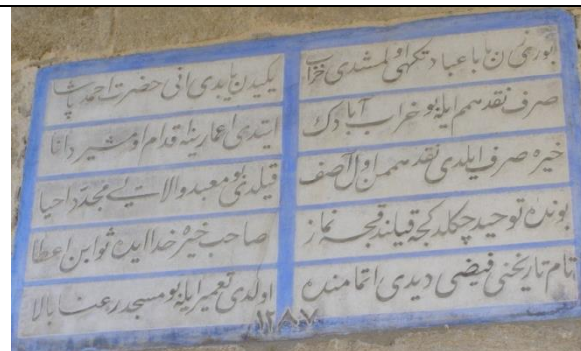 عبادتکهی اولمشدی خراب
یکیدن یاپدی انی حضرت احمد پاشا
صرف نقد همم ایله بو خراب آبادک
ایتدی اعمارینه اقدام او مشیر دانا
خیره صرف ایلدی نقد هممن اول آصف
قیلدی بو معبد والایی مجددا احیا
بونده توحید چکلدکجه قیلندقجه نماز
صاحب خیره خدا ایده ثوابن اعطا
تام تاریخنی فیضی دیدی اتمامنده
اولدی تعمیر ایله بو مسجد رعنا بالا
١٢٨٧